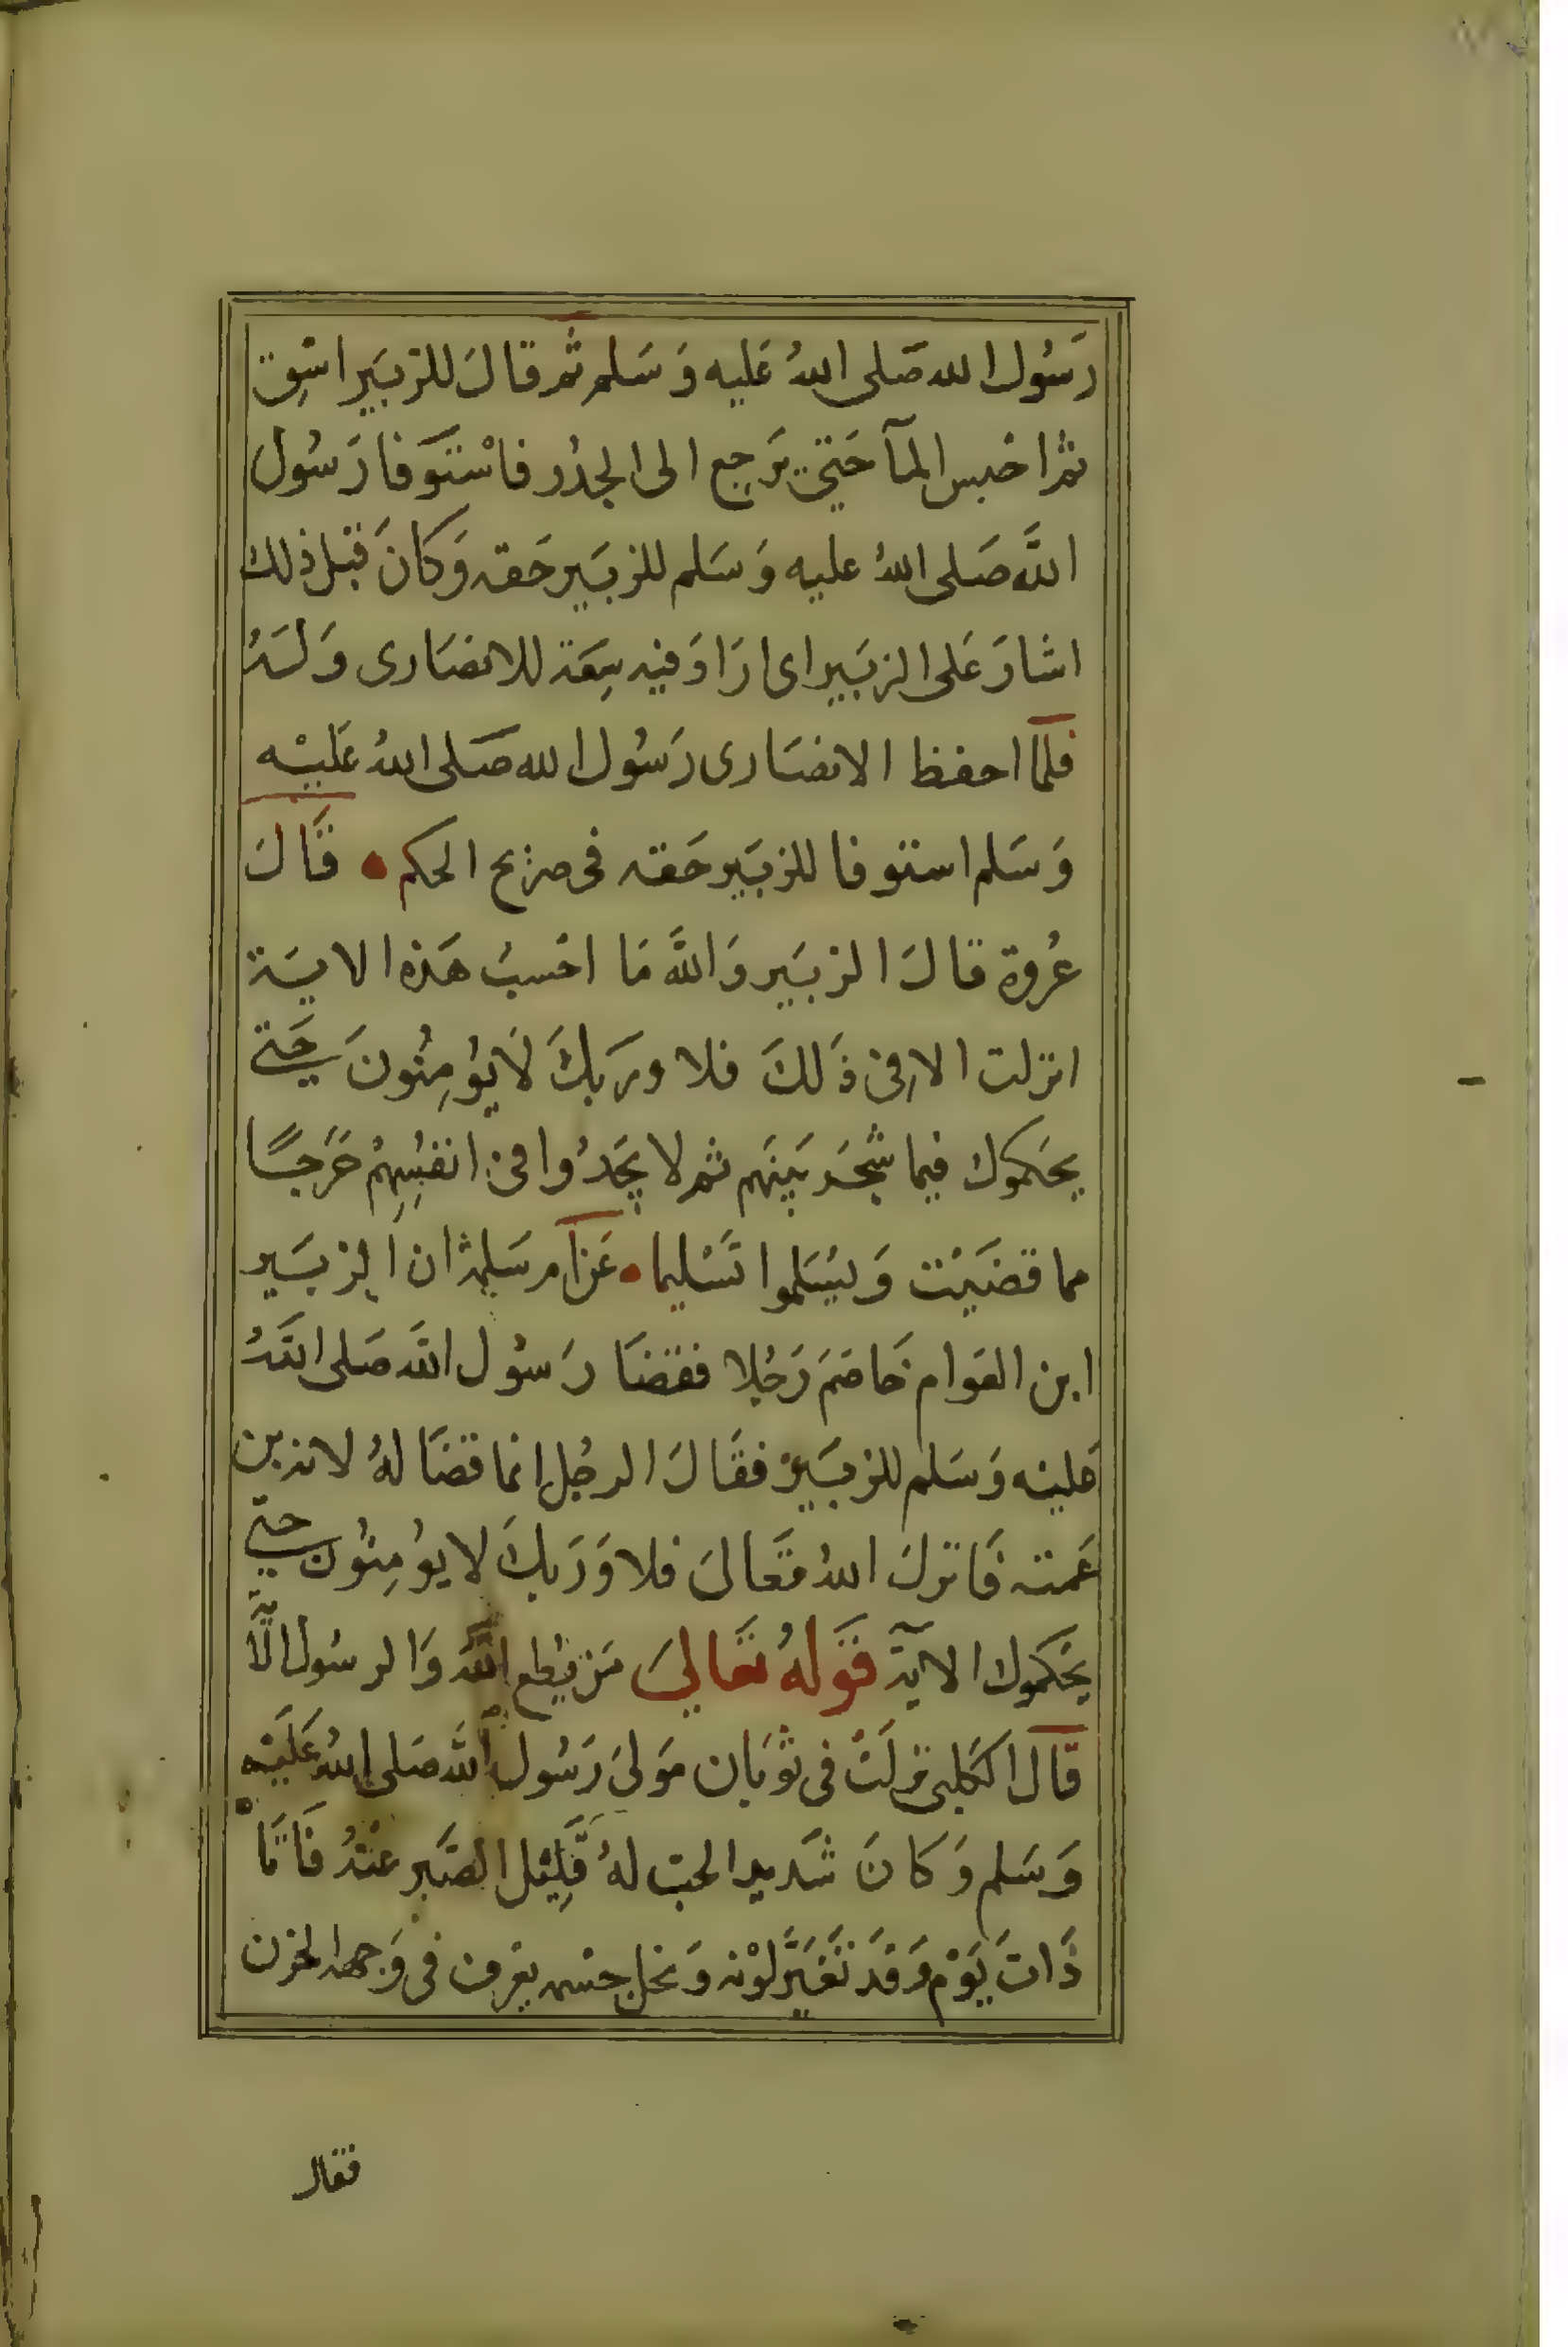 رَسُول الله صَلى اللهُ عَليه وَسَلم ثم قالَ للزبَير اسْق
ثم احْبس المآ حَتى يَرجِع الى الجدُر فاسْتَوفا رَسُول
اللَّه صَلى اللهُ عليه وَسَلم للزبَير حَقه وَكانَ قبْل ذلك
اشارَ عَلى الزبَير اى ارَادَ فيه سِعَة للانصَارى وَلَهُ
فلمّا احفظ الانصَارى رَسُول الله صَلى اللهُ عَليْه
وَسَلم استوفا للزبَير حَقه فى صريح الحكم • قَالَ
عُروة قالَ الزبَير وَاللَّه مَا احْسبُ هَذه الايَة
انزلت الا فى ذَلكَ فلا وربكَ لَا يُؤمِنُونَ حَتى
يحَكموك فيما شَجَر بَينَهم ثم لا يَجدُوا فى انفُسِهِمْ حَرَجًا
مما قضَيْت وَيسَلموا تَسْليما • عَن ام سَلمة ان الزبَير
ابن العَوام خَاصَمَ رَجُلا فقضَا رَسُول اللَّه صَلى اللَّهُ
عَليْه وَسَلم للزبَير فقَالَ الرجُل انما قضَا لهُ لانه بن
عَمته فَانزلَ اللهُ تَعَالىَ فلا وَرَبكَ لا يؤُمِنُون حتى
يحَكموك الآية قَولهُ تَعَالىَ مَن يُطع اللَّهَ وَالرسُول الآية
قَال الكَلبى نزلَتْ فى ثوبَان مَولىَ رَسُول اللَّه صَلى اللهُ عَلَيْه
وَسَلم وَكانَ شَديد الحب لهُ قَلِيْل الصَبر عَنْهُ فَاتَاْ
ذَاتَ يَوْم وَقَد تَغَيَّر لوْنه وَنحل جسْمه يعَرف فى وَجهه الحزن
فقال